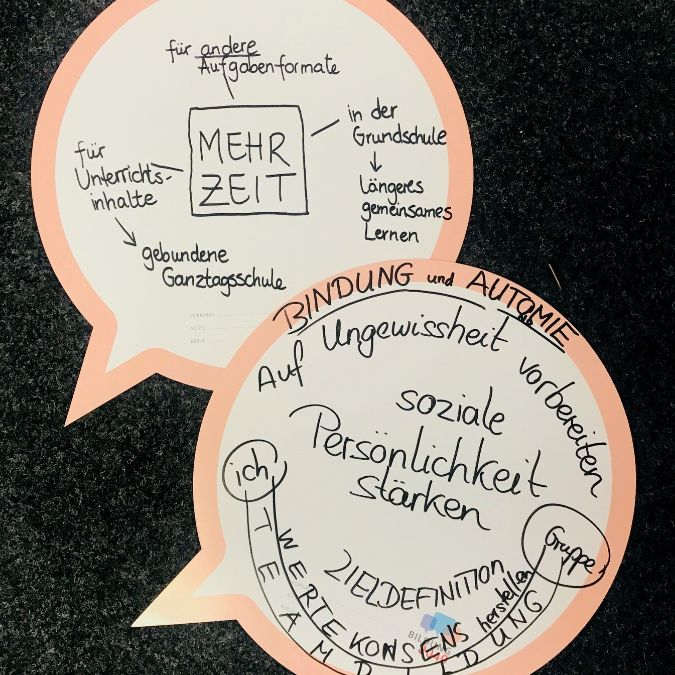 für andere
Aufgabenformate
MEHR
ZEIT
in der
Grundschule
längeres
gemeinsames
Lernen
für
Unterrichts-
inhalte
gebundene
Ganztagsschule
VORNAME
ALTER
BERUF
BINDUNG und AUTOMIE
Auf Ungewissheit vorbereiten
soziale
Persönlichkeit
stärken
ich
Gruppe
ZIELDEFINITION
WERTEKONSENS herstellen
TEAMBILDUNG